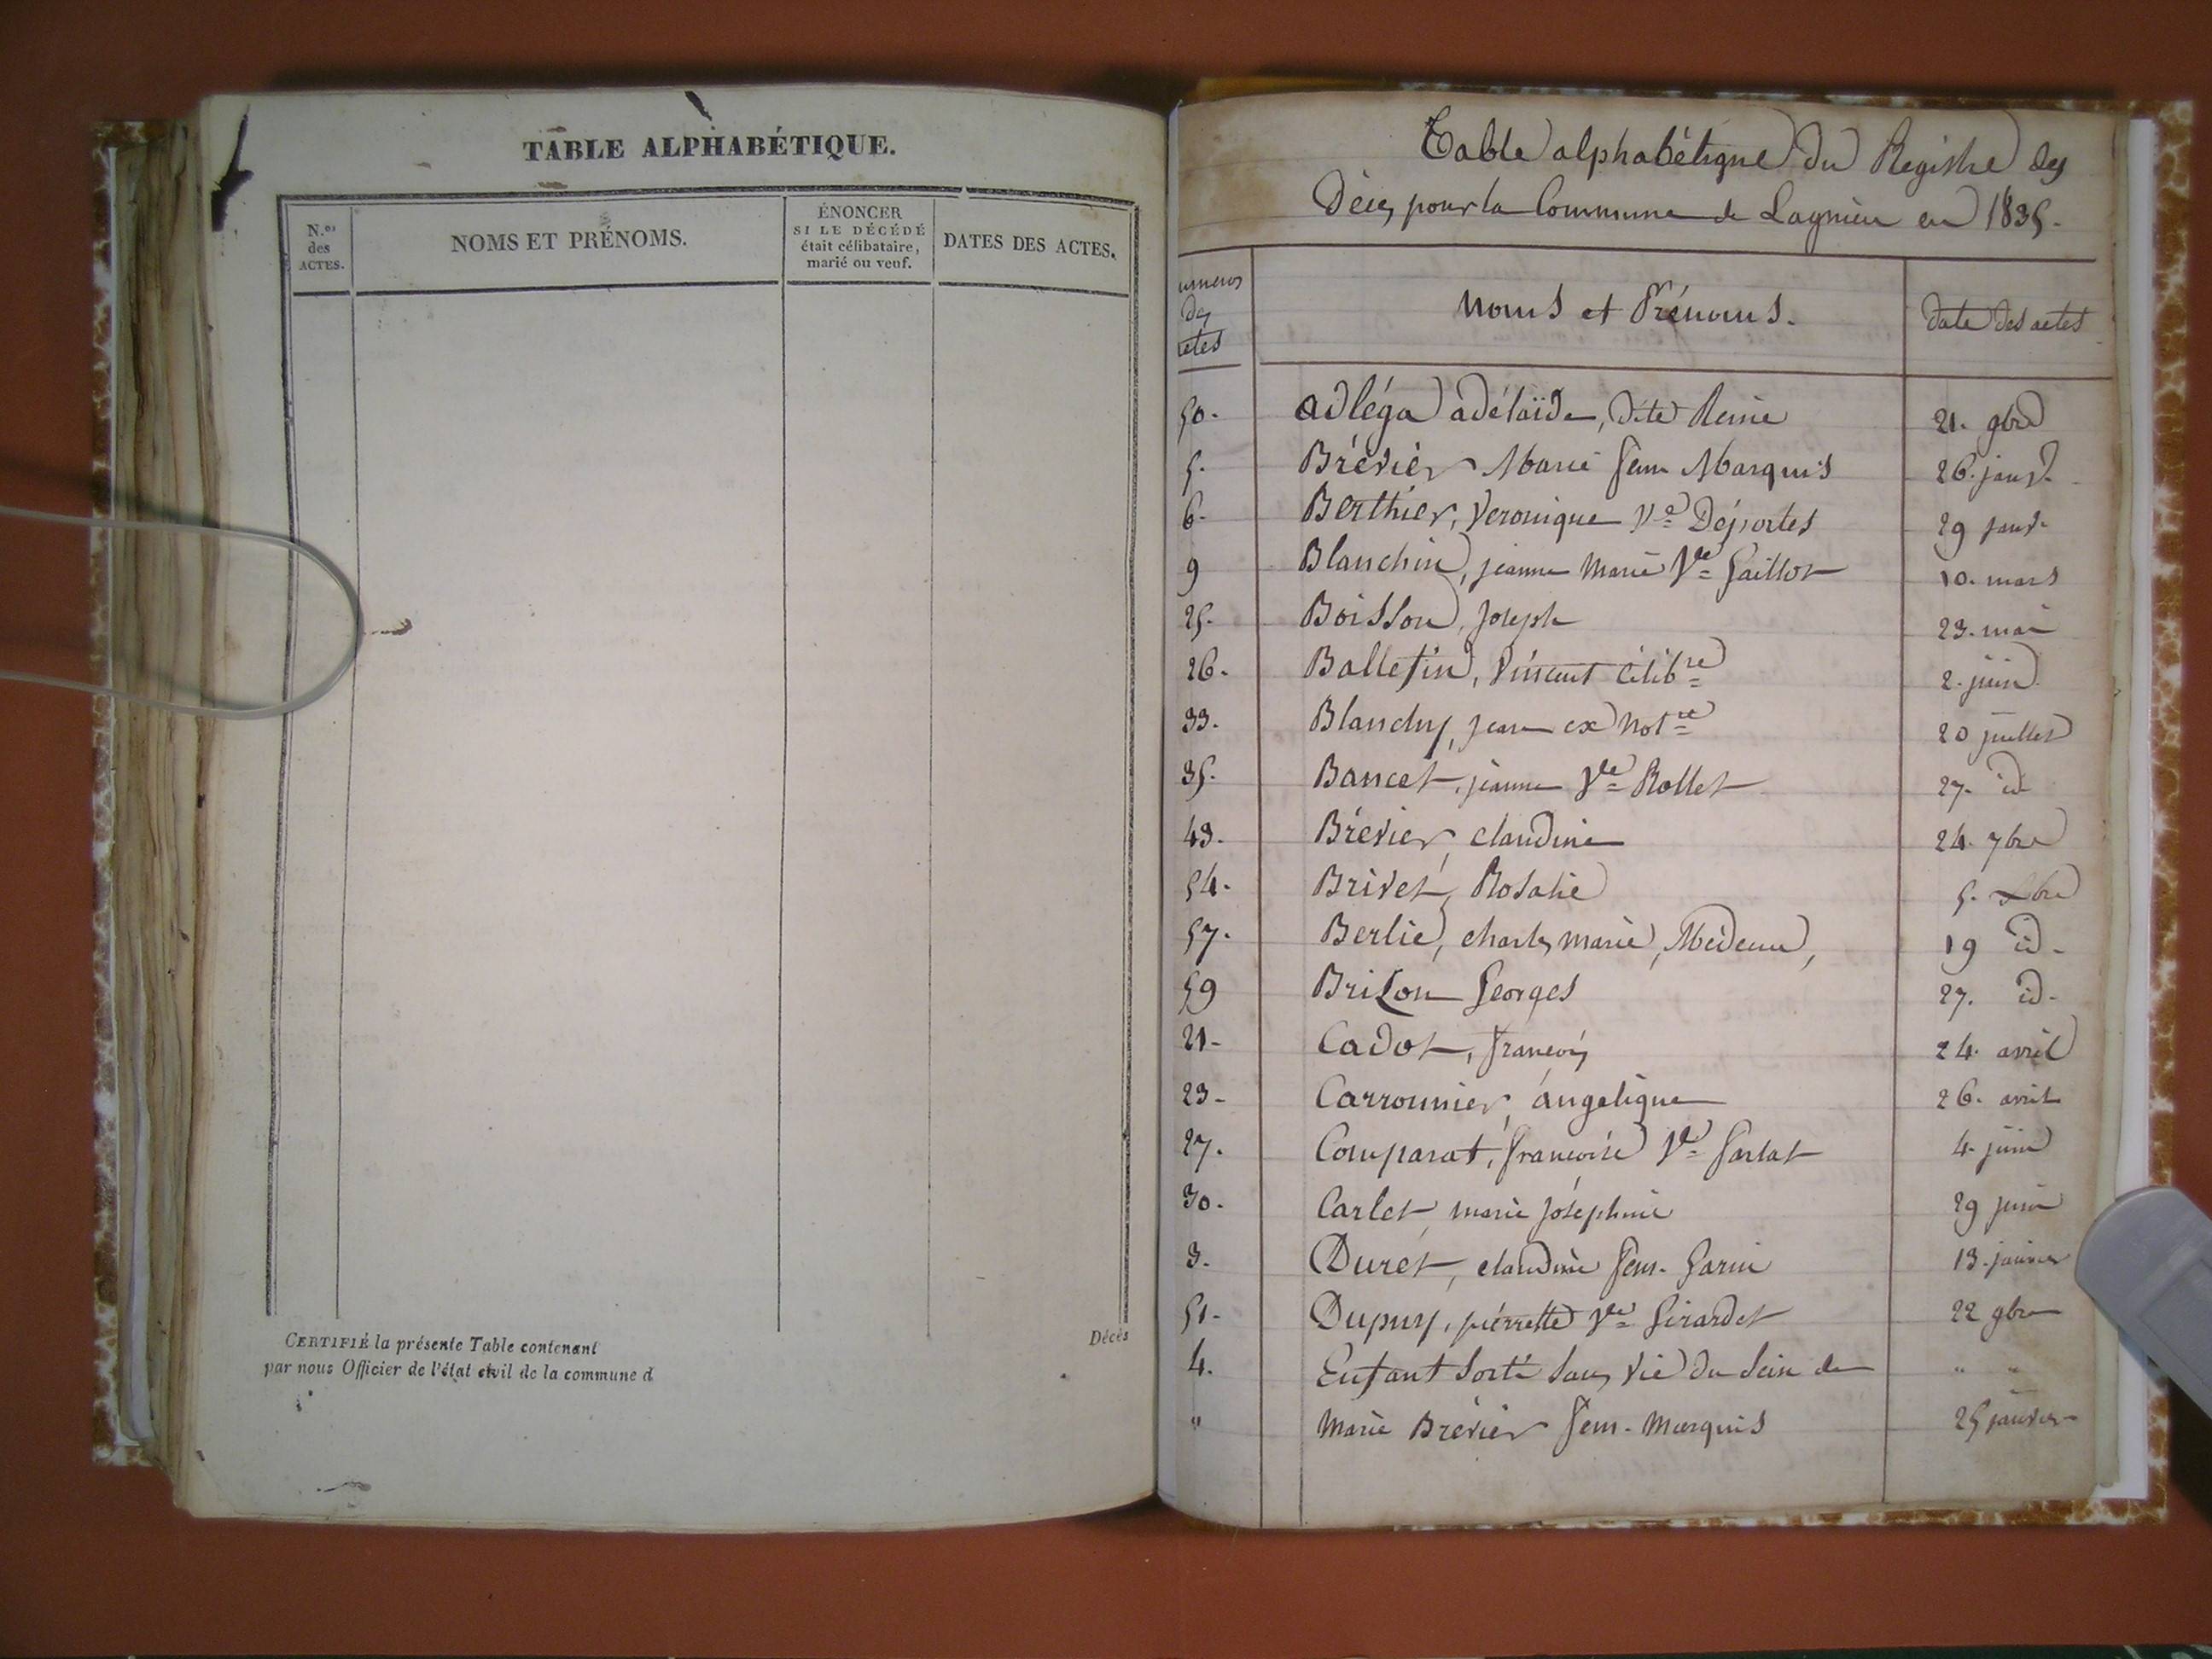 TABLE ALPHABÉTIQUE.
N.os
des
ACTES.
NOMS ET PRÉNOMS.
ÉNONCER
SI LE DÉCÉDÉ
était célibataire,
marié ou veuf.
DATES DES ACTES.
CERTIFIÉ la présente Table contenant Décès
par nous Officier de l'état civil de la commune d
Table alphabétique du Registre des
Décès pour la Commune de Lagnieu en 1835.
uméros
des
actes
Noms et Prénoms.
date des actes
50. adléga adélaïde, dite Reine 21. 9bre
5. Brévier Marie fem Marquis 26. janv.
6. Berthier, Veronique Ve Déportes 29 janv.
9 Blanchin, jeanne Marie Ve Gaillot 10. mars
25. Boisson, Joseph 23. mai
26. Balletin, Vincent Célibre 2. juin
33. Blanchy, jean ex Notre 20 juillet
35. Bancet, jeanne Ve Rollet 27. id
43. Brévier, claudine 24. 7bre
54. Brivet, Rosalie 5. Xbre
57. Berlie, charles marie, Médecin, 19 id.
59 Brizon Georges 27. id.
21. Cadot, françois 24. avril
23. Carronnier, angelique 26. avril
27. Comparat, françoise Ve 4. juin
30. Carlet, marie joséphine 29 juin
3. Duret, claudine fem. Garin 13. janvier
51. Dupuy, pierrette Ve Girardet 22 9bre
4. Enfant sorti sans vie du sein de " "
" Marie Brévier fem. Marquis 25 janvier